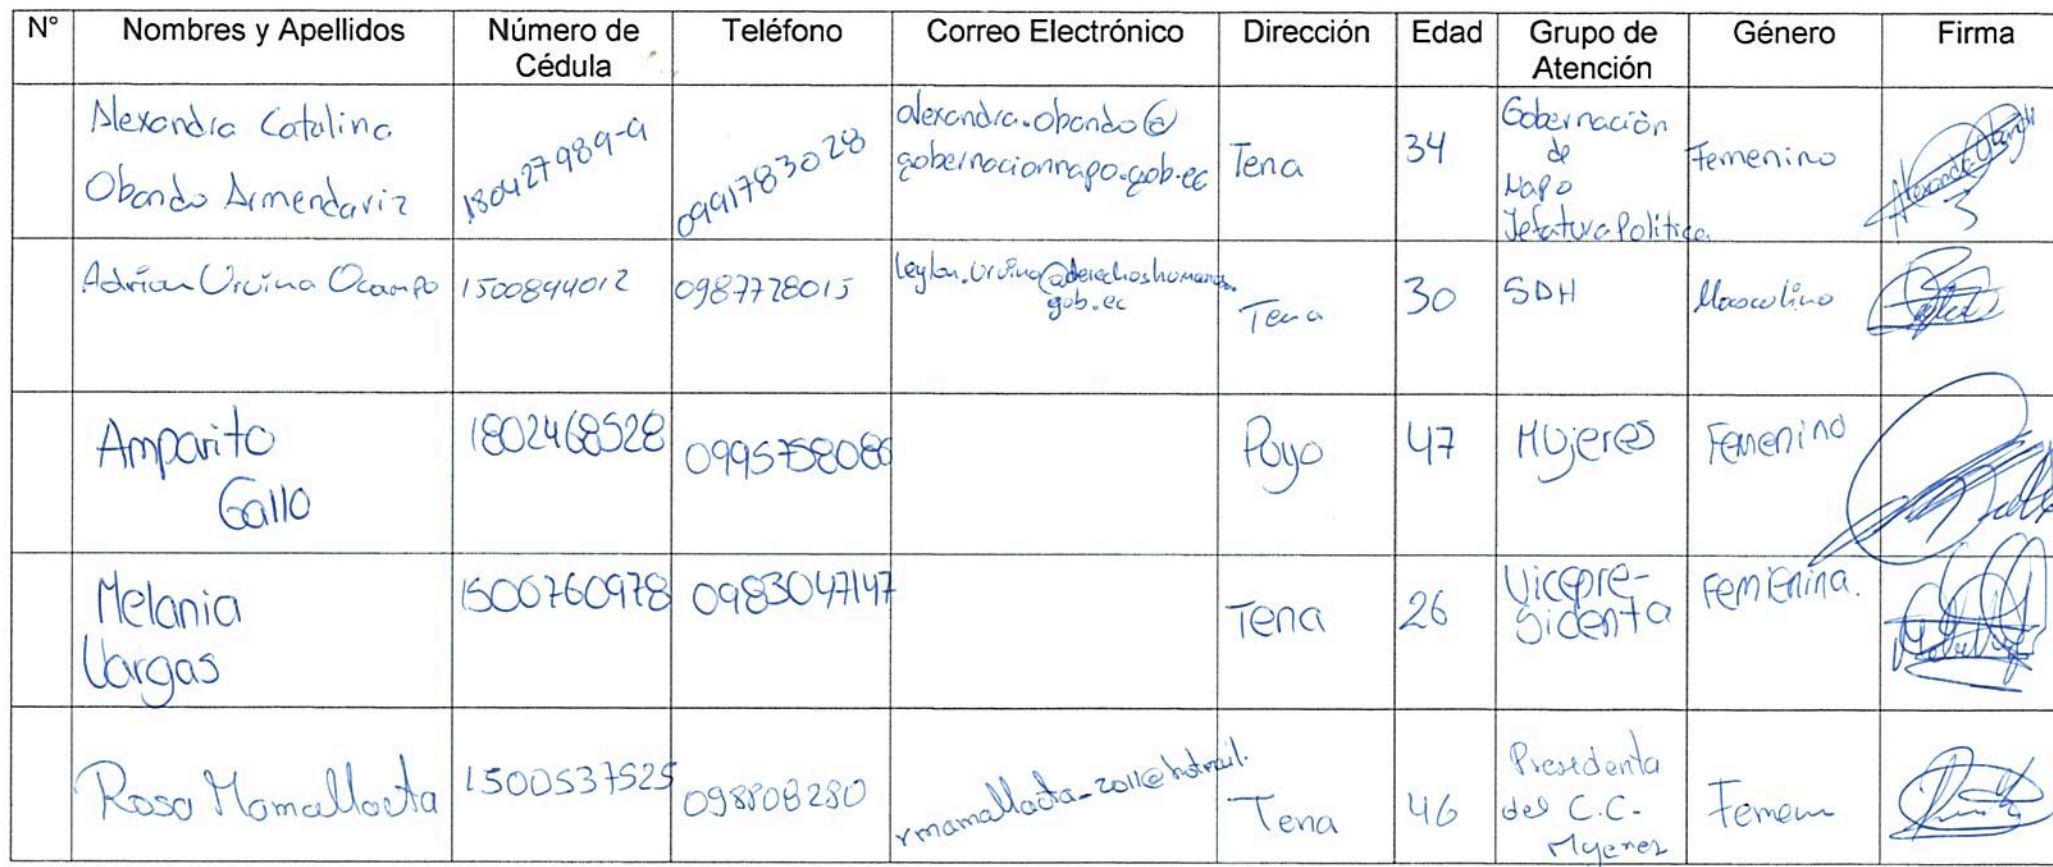 N° Nombres y Apellidos Número de Cédula Teléfono Correo Electrónico Dirección Edad Grupo de Atención Género Firma
Alexandra Catalina
Obando Armendariz
180427989-9
0991783028
alexandra.obando@
gobernacionnapo.gob.ec
Tena
34
Gobernación
de
Napo
Jefatura Politica
Femenino
Adrian Urvina Ocampo
1500844012
0987728015
leylan.urvina@derechoshumanos.
gob.ec
Tena
30
SDH
Masculino
Amparito
Gallo
1802468528
0995758086
Puyo
47
Mujeres
Femenino
Melania
Vargas
1500760978
0983047147
Tena
26
Vicepre-
sidenta
Femenina.
Rosa Mamallacta
1500537525
098808280
rmamallacta_2011@hotmail.
Tena
46
Presidenta
del C.C.
Mujeres
Femen